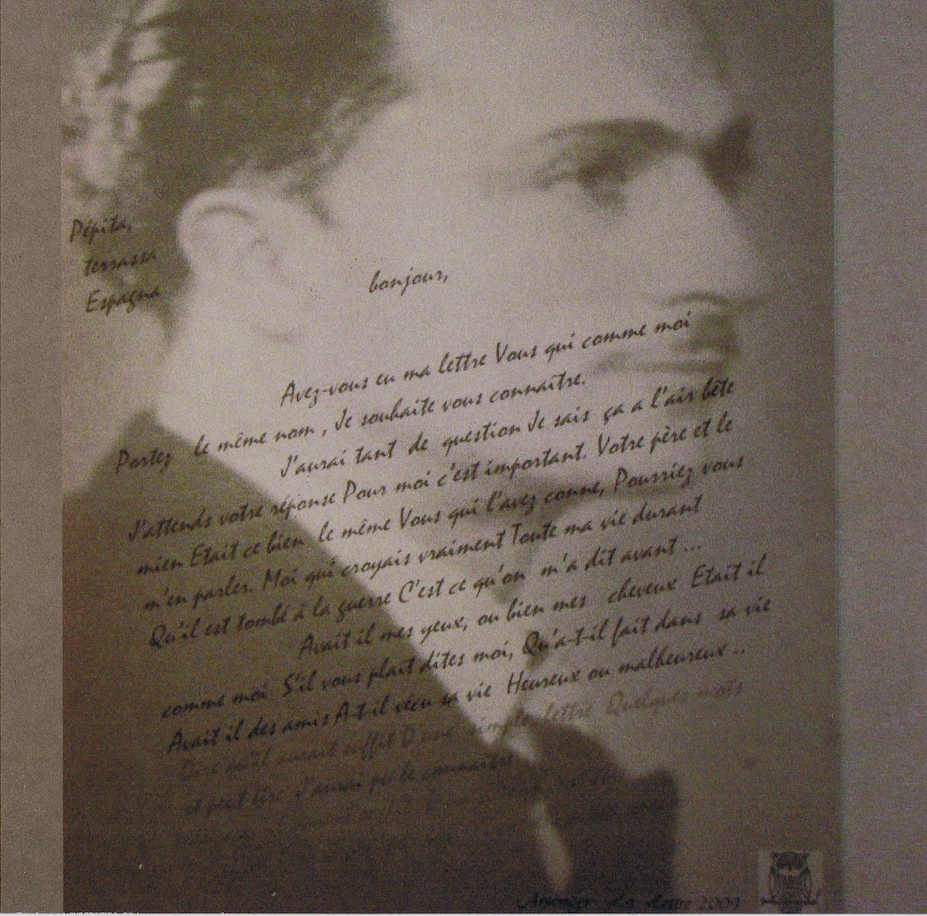 Pépita,
terrassa
Espagna
bonjour,
Avez-vous eu ma lettre Vous qui comme moi
Portez le même nom , Je souhaite vous connaître.
J'aurai tant de question Je sais ça a l'air bête
J'attends votre réponse Pour moi c'est important. Votre père et le
mien Etait ce bien le même Vous qui l'avez conne, Pourriez vous
m'en parler. Moi qui croyais vraiment Toute ma vie durant
Qu'il est tombé à la guerre C'est ce qu'on m'a dit avant ...
Avait il mes yeux, ou bien mes cheveux Etait il
comme moi S'il vous plait dites moi, Qu'a-t-il fait dans sa vie
Avait il des amis A-t-il vécu sa vie Heureux ou malheureux ..
Dire qu'il aurait suffit D'une simple lettre Quelques mots
et peut être J'aurai pu le connaître
La lettre 2004